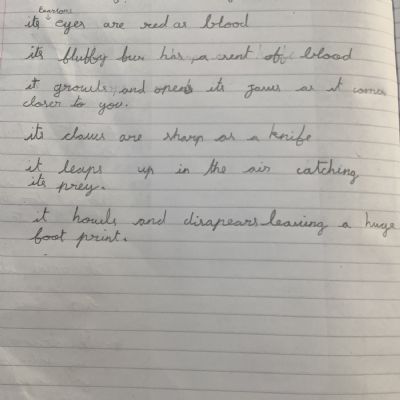 fearsome
its eyes are red as blood
its fluffy fur has a sent of blood
it growls, and opens its jaws as it comes
closer to you.
its claws are sharp as a knife
it leaps up in the air catching
its prey.
it howls and disapears leaving a huge
foot print.